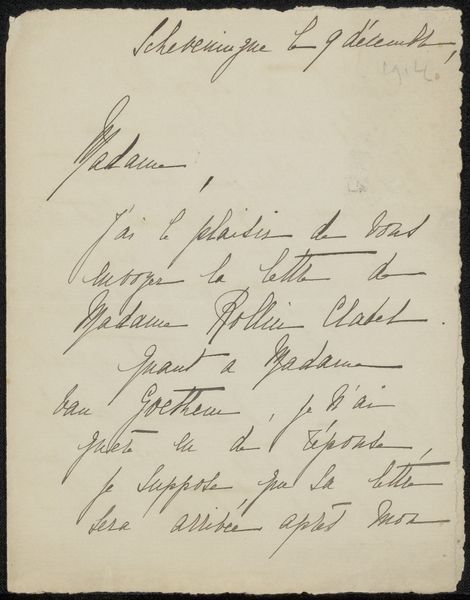 Scheveningue le 9 décembre,
1914.
Madame,
J'ai le plaisir de vous
envoyer la lettre de
Madame Rollin Cladel.
Quant à Madame
van Goethem, je n'ai
guère eu de réponse,
je suppose que sa lettre
sera arrivée après mon